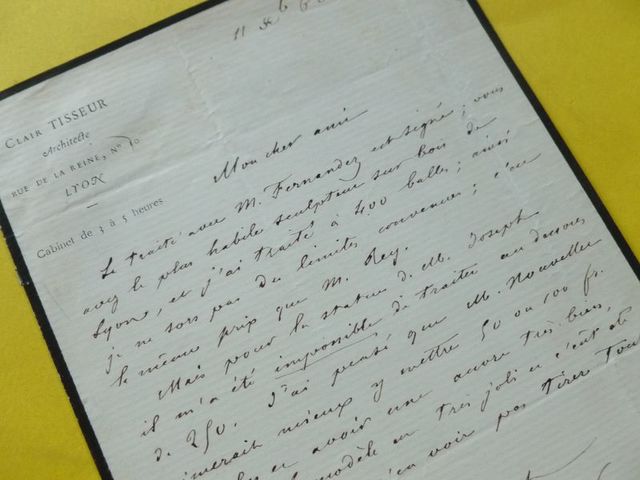 11 8bre 6
CLAIR TISSEUR
Architecte
RUE DE LA REINE, No 10
LYON
Cabinet de 3 à 5 heures
Mon cher ami
Le traité avec M. Fernandez est signé ; vous
avez le plus habile sculpteur sur bois de
Lyon, et j'ai traité à 400 balles ; ainsi
je ne sors pas des limites convenues ; c'est
le même prix que M. Rey.
Mais pour la statue de M. Joseph
il m'a été impossible de traiter au dessous
de 250. J'ai pensé que M. Nouvellet
aimerait mieux y mettre 50 ou 100 fr.
et avoir une œuvre très bien
modèle est très joli et c'eût été
n'en voir pas tirer tout